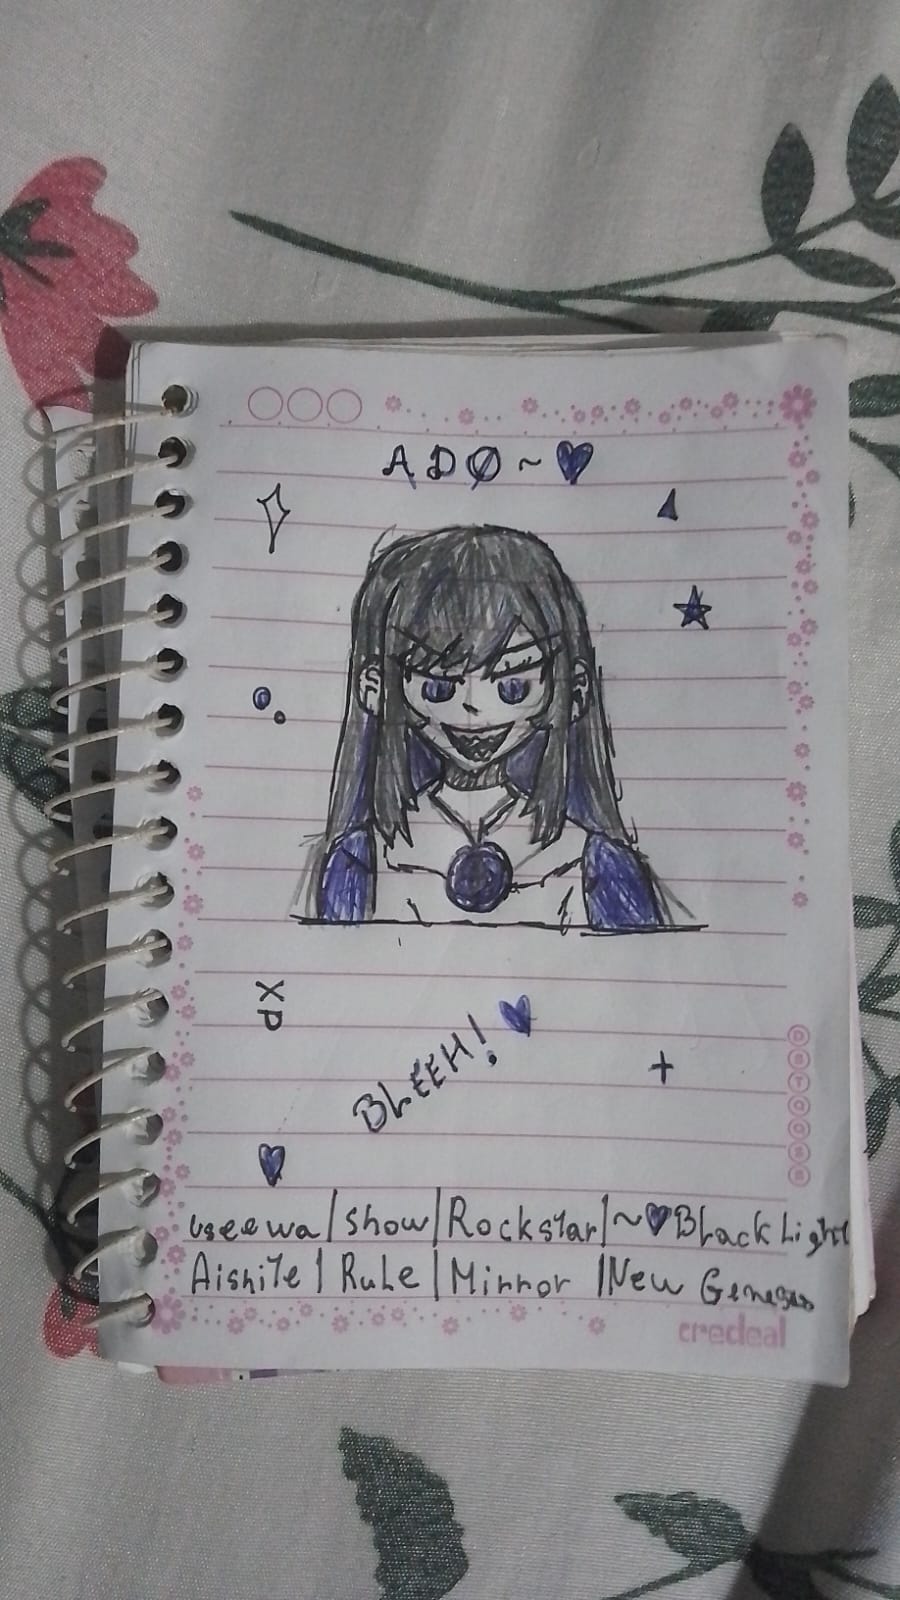 ADØ ~ ♥
XP
BLEEH! ♥
useewa | show | Rockstar | ~♥ Black Light
Aishite | Rule | Mirror | New Genesis
credeal